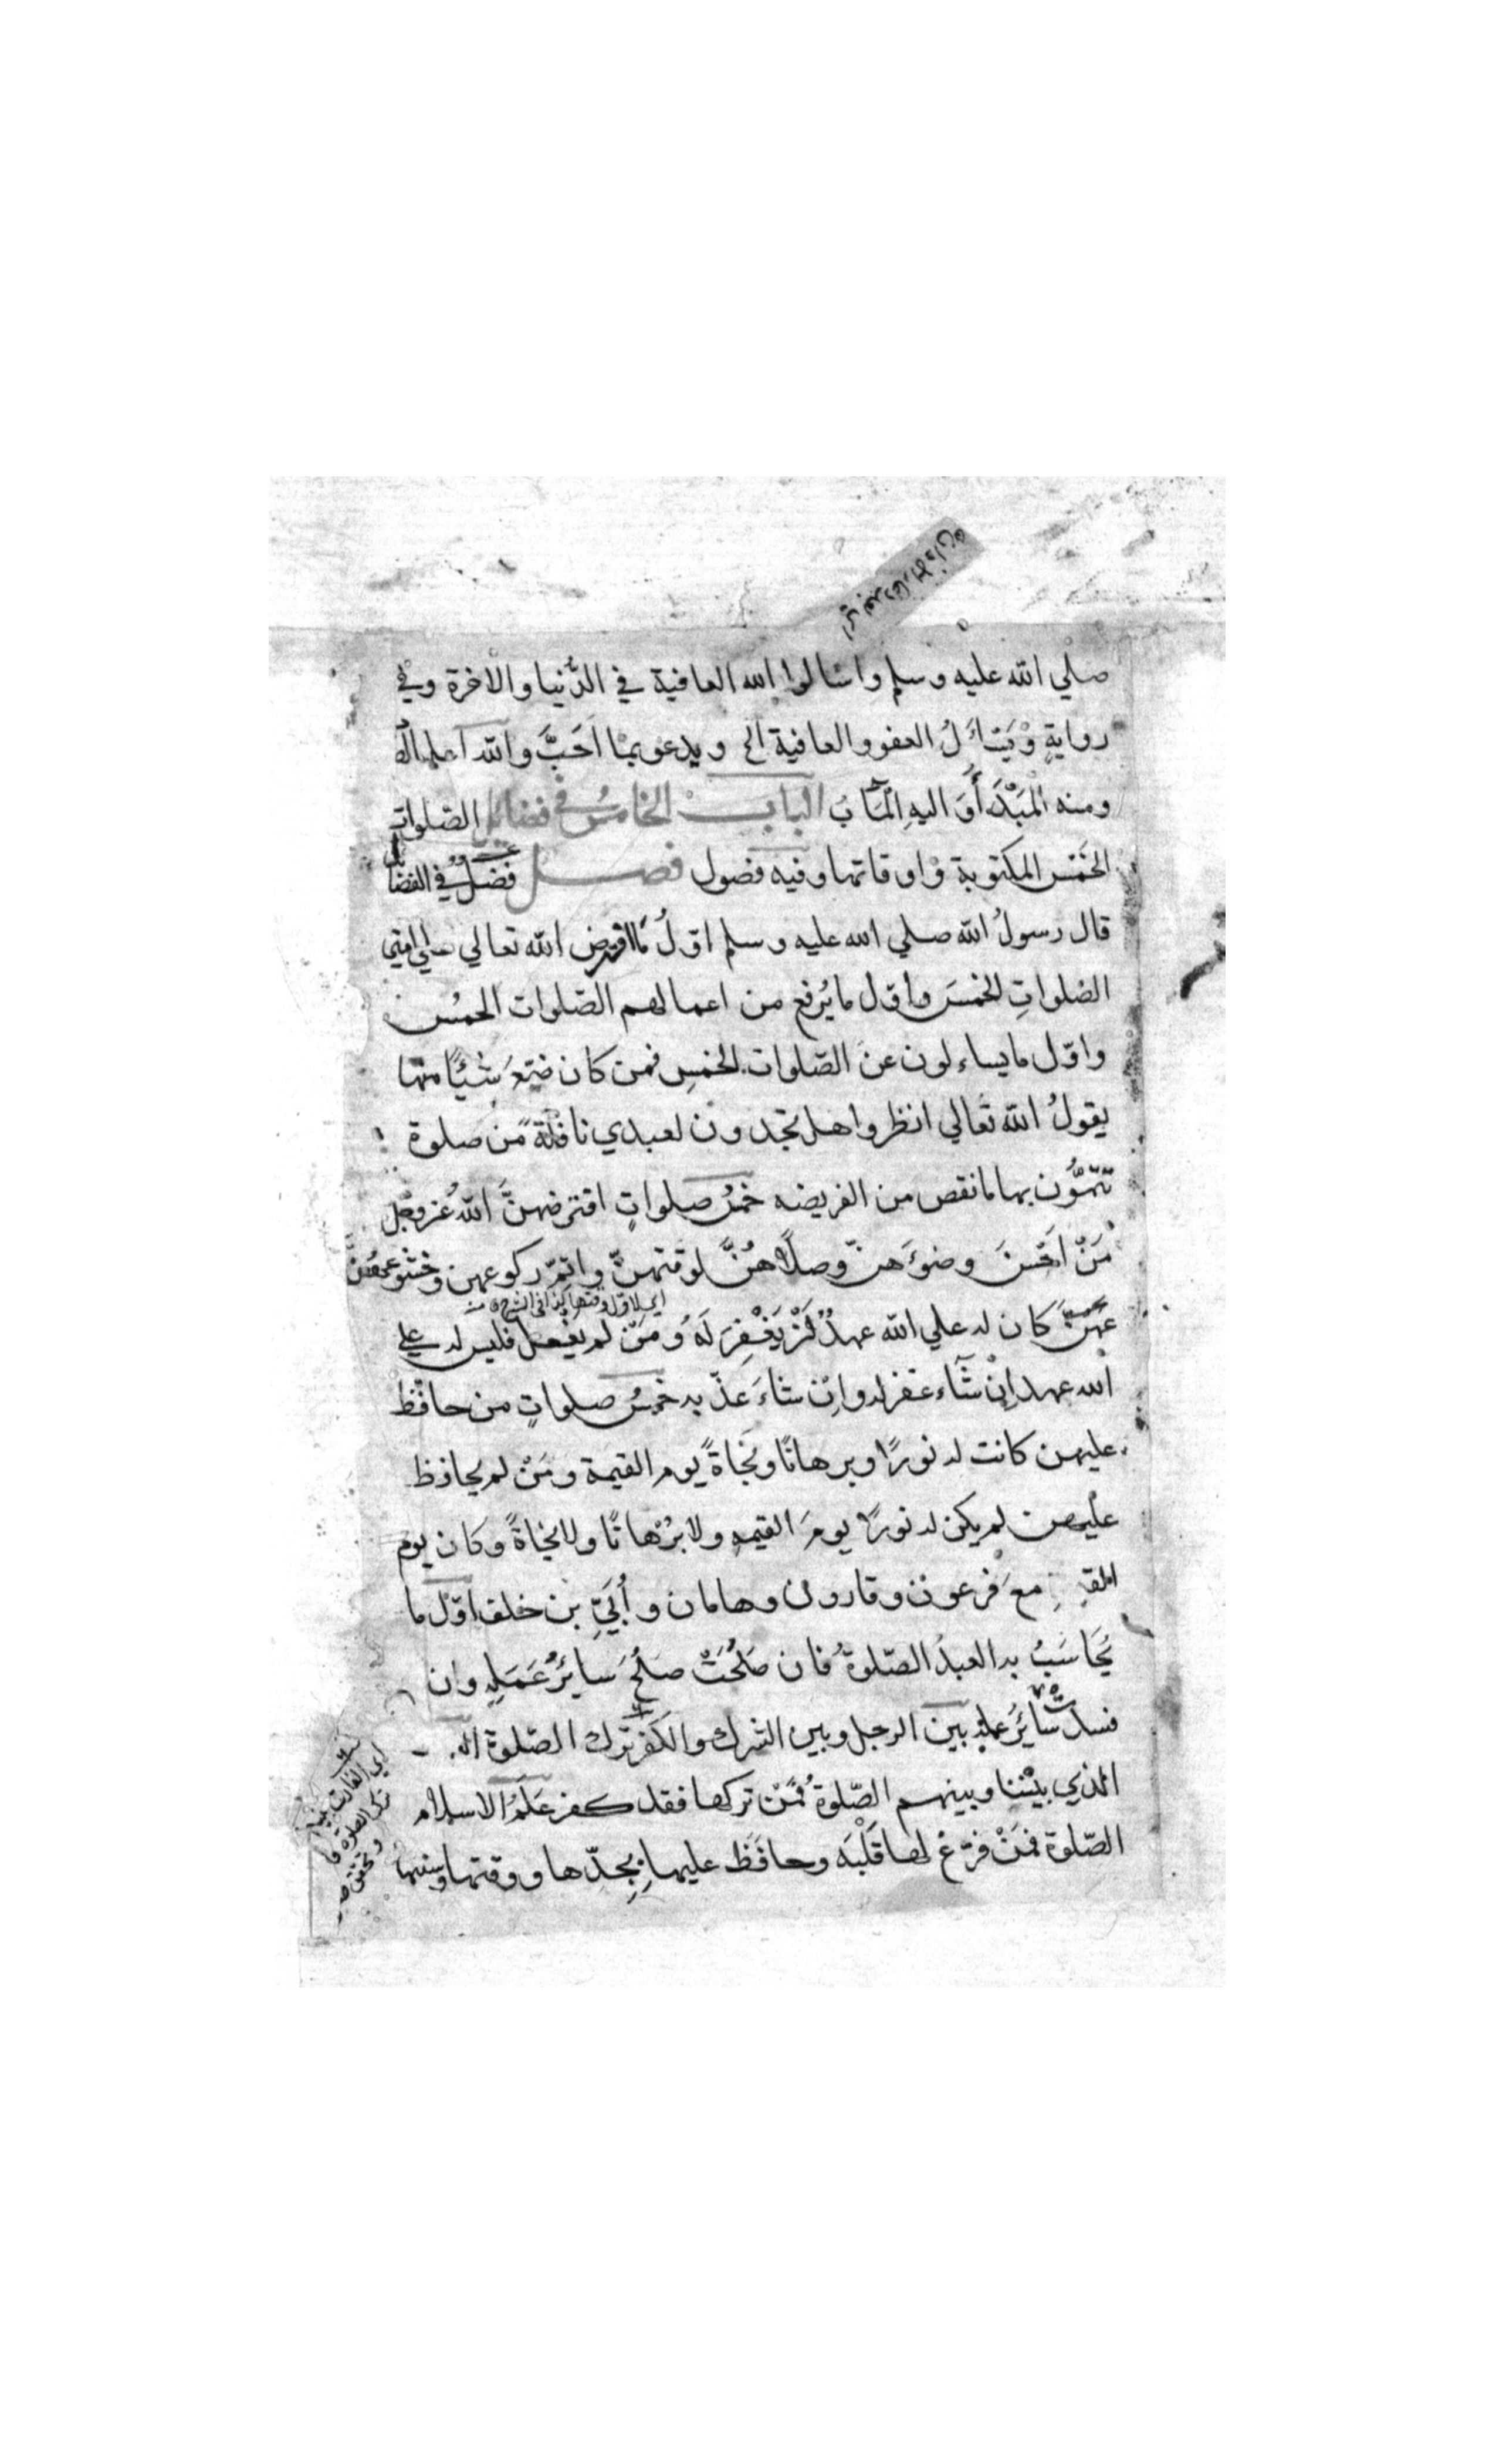 صلي الله عليه وسلم واسالوا الله العافية في الدُّنيا والاخرة وفي
روايةٍ وَيَسْاَلُ العفو والعافية الخ ويدعو بمْا اَحَبَّ والله اعلم
ومنه الْمَبْدَأُ وَ اليهِ الْمَآبُ البابـــ الخامسُ في فضايل الصّلواتِ
الخَمْسِ المكتوبة وَاوقاتها وفيه فصول فصـــل فَضْلٌ في الفضايل
قال رسولُ الله صلي الله عليه وسلم اوّلُ مَا افترض الله تعالي علي امّتي
الصّلواتِ الخمسَ واوّل ما يُرفع من اعمالهم الصّلوات الخمسُ
واوّل ما يساءلون عن الصّلوات الخمسِ فمن كان ضيّعَ شَيْئًا منها
يقولُ الله تعالي انظروا هل تجدون لعبدي نافلةً من صلوة
تتمّون بها ما نقص من الفريضه خمسُ صلواتٍ افترضهنَّ اللهُ عزوجل
مَنْ اَحْسَنَ وضوءَهنّ وصلّاهُنَّ لوقتهنّ واتمّ ركوعهن وخشوعهُنَّ
اي لاوّل وقتها كذا في الشرح
كان له علي الله عهدٌ اَنْ يَغْفِرَ لَهُ وَمَنْ لم يفعل فليس له علي
الله عهد اِنْ شَآء غفر له وان شاءَ عذّ به خمسُ صلواتٍ من حافظ
عليهن كانت له نورًا وبرهانًا ونَجَاةً يوم القيمة ومَنْ لم يحافظ
عليهن لم يكن له نورًا يومَ القيمهِ ولا بُرْهانًا ولا نجاةً وكان يوم
مع فرعون وقارون وهامان و أُبَيِّ بن خلف اوّل ما
يُحَاسَبُ به العبدُ الصّلوةُ فان صَلُحَتْ صلُحَ سايرُ عَمَلِهِ وان
فسدت سايرُ عمله بين الرجل وبين الشرك والكفر ترك الصّلوة
الذي بيْننا وبينهم الصّلوةُ فمَنْ تركها فقد كفر عَلَمُ الاسلام
الصّلوة فمَنْ فرّغ لها قَلْبَه وحافَظَ عليها بِحدّها ووقتها وسننها